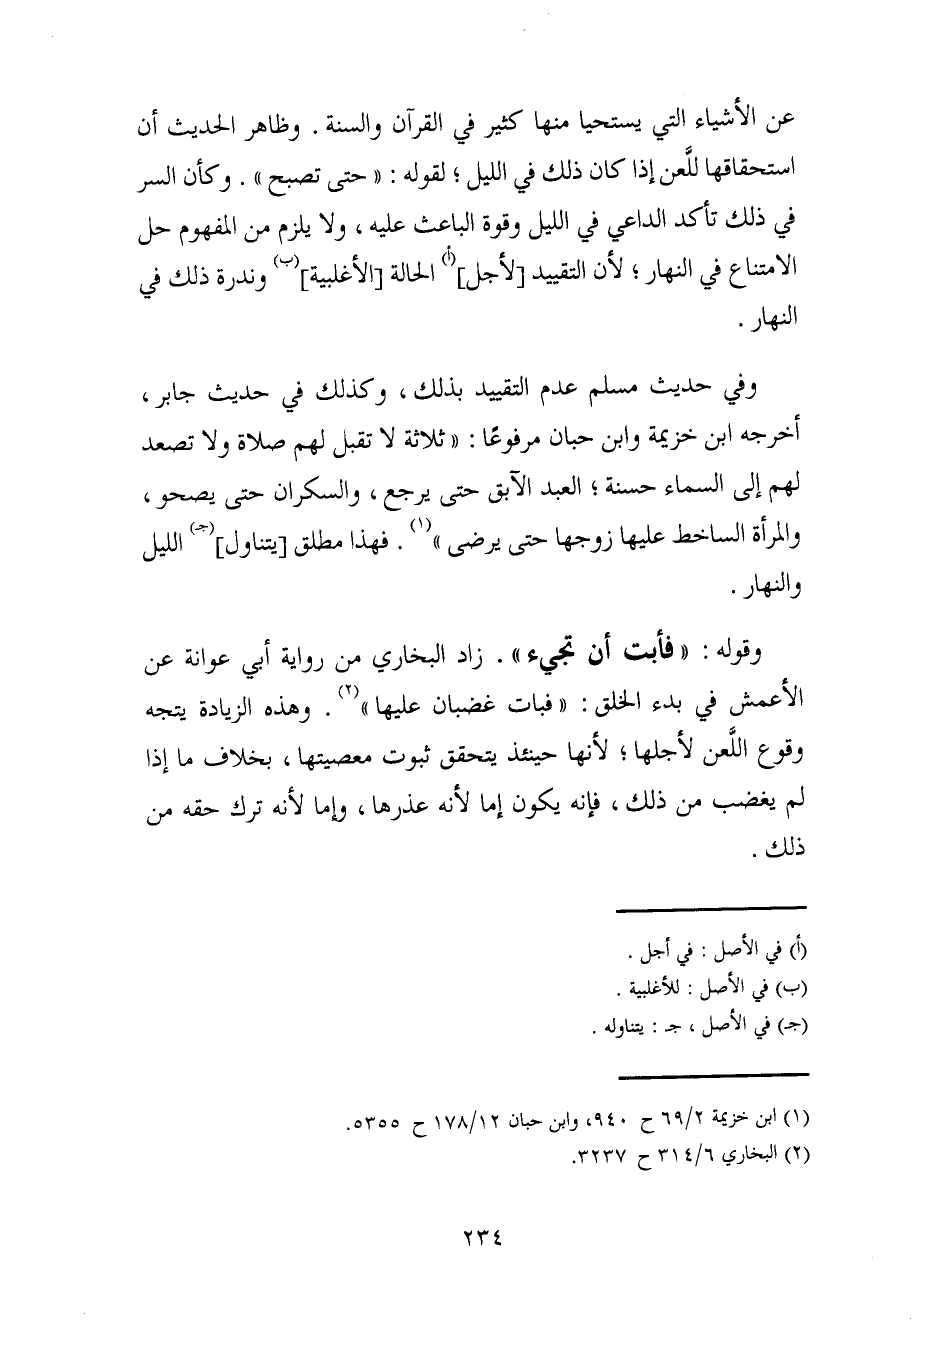 عن الأشياء التي يستحيا منها كثير في القرآن والسنة . وظاهر الحديث أن
استحقاقها للَّعن إذا كان ذلك في الليل ؛ لقوله : « حتى تصبح » . وكأن السر
في ذلك تأكد الداعي في الليل وقوة الباعث عليه ، ولا يلزم من المفهوم حل
الامتناع في النهار ؛ لأن التقييد [لأجل](أ) الحالة [الأغلبية](ب) وندرة ذلك في
النهار .
وفي حديث مسلم عدم التقييد بذلك ، وكذلك في حديث جابر ،
أخرجه ابن خزيمة وابن حبان مرفوعًا : « ثلاثة لا تقبل لهم صلاة ولا تصعد
لهم إلى السماء حسنة ؛ العبد الآبق حتى يرجع ، والسكران حتى يصحو ،
والمرأة الساخط عليها زوجها حتى يرضى »(١) . فهذا مطلق [يتناول](جـ) الليل
والنهار .
وقوله : « فأبت أن تجيء » . زاد البخاري من رواية أبي عوانة عن
الأعمش في بدء الخلق : « فبات غضبان عليها »(٢) . وهذه الزيادة يتجه
وقوع اللَّعن لأجلها ؛ لأنها حينئذ يتحقق ثبوت معصيتها ، بخلاف ما إذا
لم يغضب من ذلك ، فإنه يكون إما لأنه عذرها ، وإما لأنه ترك حقه من
ذلك .
(أ) في الأصل : في أجل .
(ب) في الأصل : للأغلبية .
(جـ) في الأصل ، جـ : يتناوله .
(١) ابن خزيمة ٦٩/٢ ح ٩٤٠، وابن حبان ١٧٨/١٢ ح ٥٣٥٥.
(٢) البخاري ٣١٤/٦ ح ٣٢٣٧.
٢٣٤